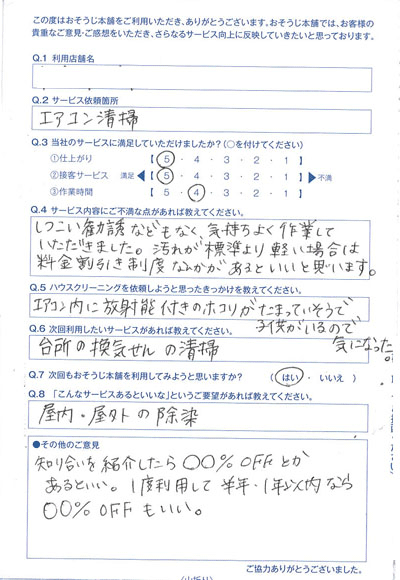 この度はおそうじ本舗をご利用いただき、ありがとうございます。おそうじ本舗では、お客様の
貴重なご意見・ご感想をいただき、さらなるサービス向上に反映していきたいと思っております。
Q.1 利用店舗名
Q.2 サービス依頼箇所
エアコン清掃
Q.3 当社のサービスに満足していただけましたか?(○を付けてください)
①仕上がり 【 5 ・ 4 ・ 3 ・ 2 ・ 1 】
②接客サービス 満足 ◀ 【 5 ・ 4 ・ 3 ・ 2 ・ 1 】 ▶ 不満
③作業時間 【 5 ・ 4 ・ 3 ・ 2 ・ 1 】
Q.4 サービス内容にご不満な点があれば教えてください。
しつこい勧誘などもなく、気持ちよく作業して
いただきました。汚れが標準より軽い場合は
料金割引き制度なんかがあるといいと思います。
Q.5 ハウスクリーニングを依頼しようと思ったきっかけを教えてください。
エアコン内に放射能付きのホコリがたまっていそうで
子供がいるので
気になった。
Q.6 次回利用したいサービスがあれば教えてください。
台所の換気せんの清掃
Q.7 次回もおそうじ本舗を利用してみようと思いますか? (はい ・ いいえ)
Q.8 「こんなサービスあるといいな」というご要望があれば教えてください。
屋内・屋外の除染
●その他のご意見
知り合いを紹介したら〇〇% OFFとか
あるといい。1度利用して半年・1年以内なら
〇〇% OFFもいい。
ご協力ありがとうございました。